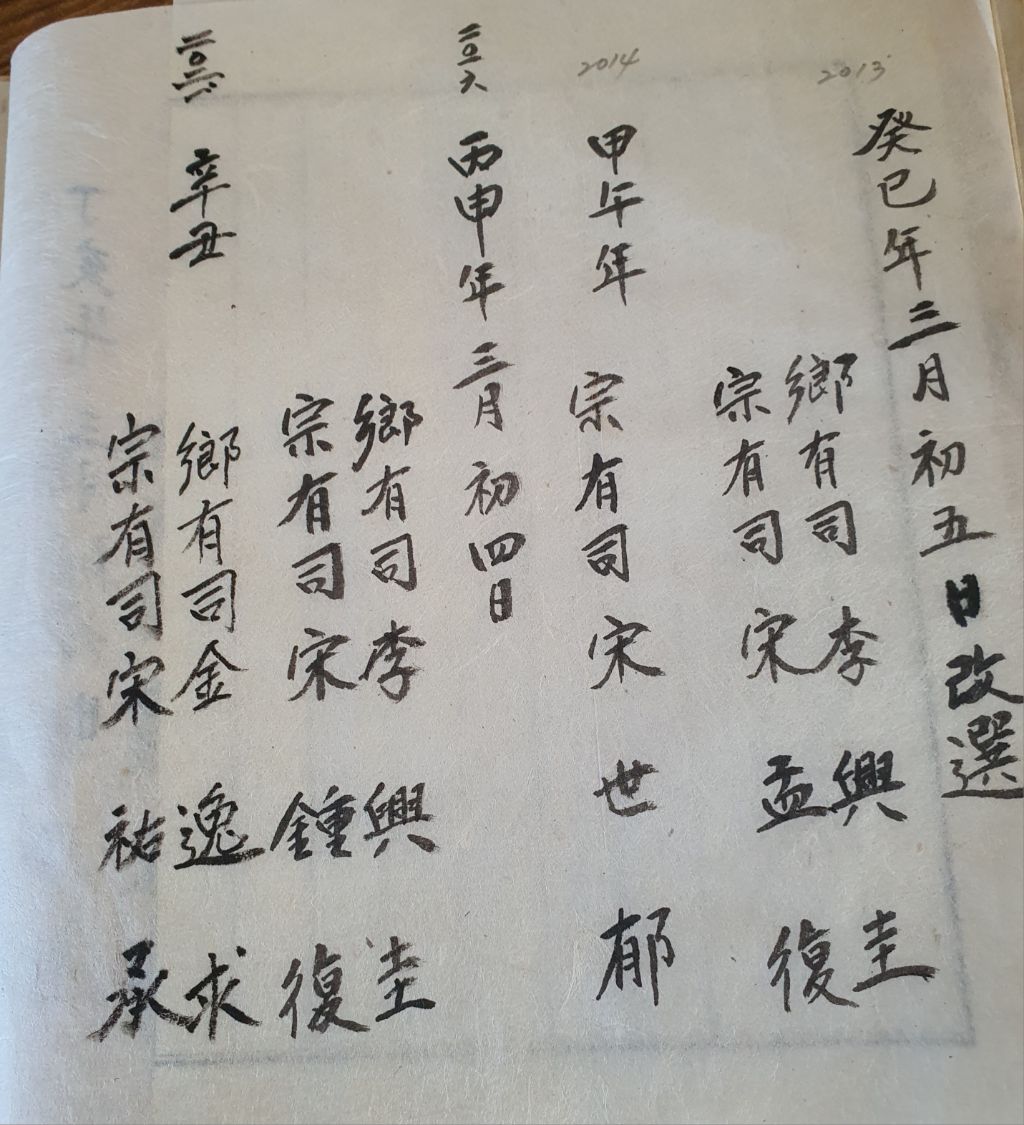 2013
癸巳年三月初五日改選
鄉有司 李興圭
宗有司 宋孟復
2014
甲午年 宗有司 宋世郁
二〇一六 丙申年 三月初四日
鄉有司 李興圭
宗有司 宋鍾復
二〇二一 辛丑 鄉有司 金逸求
宗有司 宋祐承